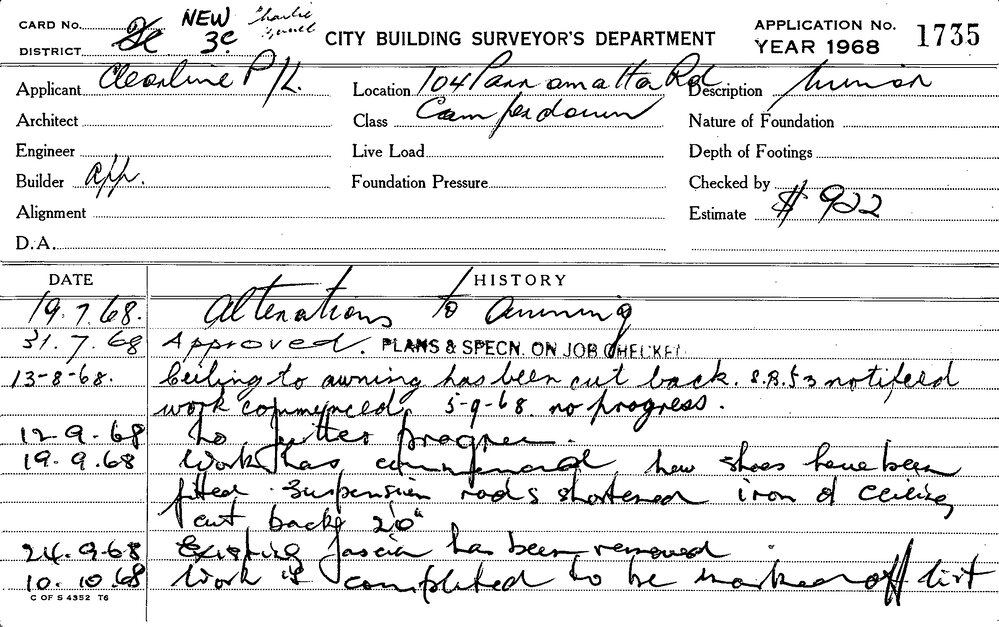 CARD No. 2c NEW Charlie
DISTRICT 3c
CITY BUILDING SURVEYOR'S DEPARTMENT
APPLICATION No. 1735
YEAR 1968
Applicant Clearline P/L. Location 104 Parramatta Rd Description minor
Architect Class Camperdown Nature of Foundation
Engineer Live Load Depth of Footings
Builder app. Foundation Pressure Checked by
Alignment Estimate $ 922
D.A.
DATE HISTORY
19.7.68. Alterations to awning
31.7.68 Approved. PLANS & SPECN. ON JOB CHECKED
13-8-68. Ceiling to awning has been cut back. S.R.53 notifeed
work commenced. 5-9-68. no progress.
12.9.68 No further progress.
19.9.68 Work has commenced, new shoes have been
fitted. Suspension rods shortened iron & ceiling
cut back 2'0"
24.9.68 Existing fascia has been removed
10.10.68 Work is completed to be marked off list
C OF S 4352 T6